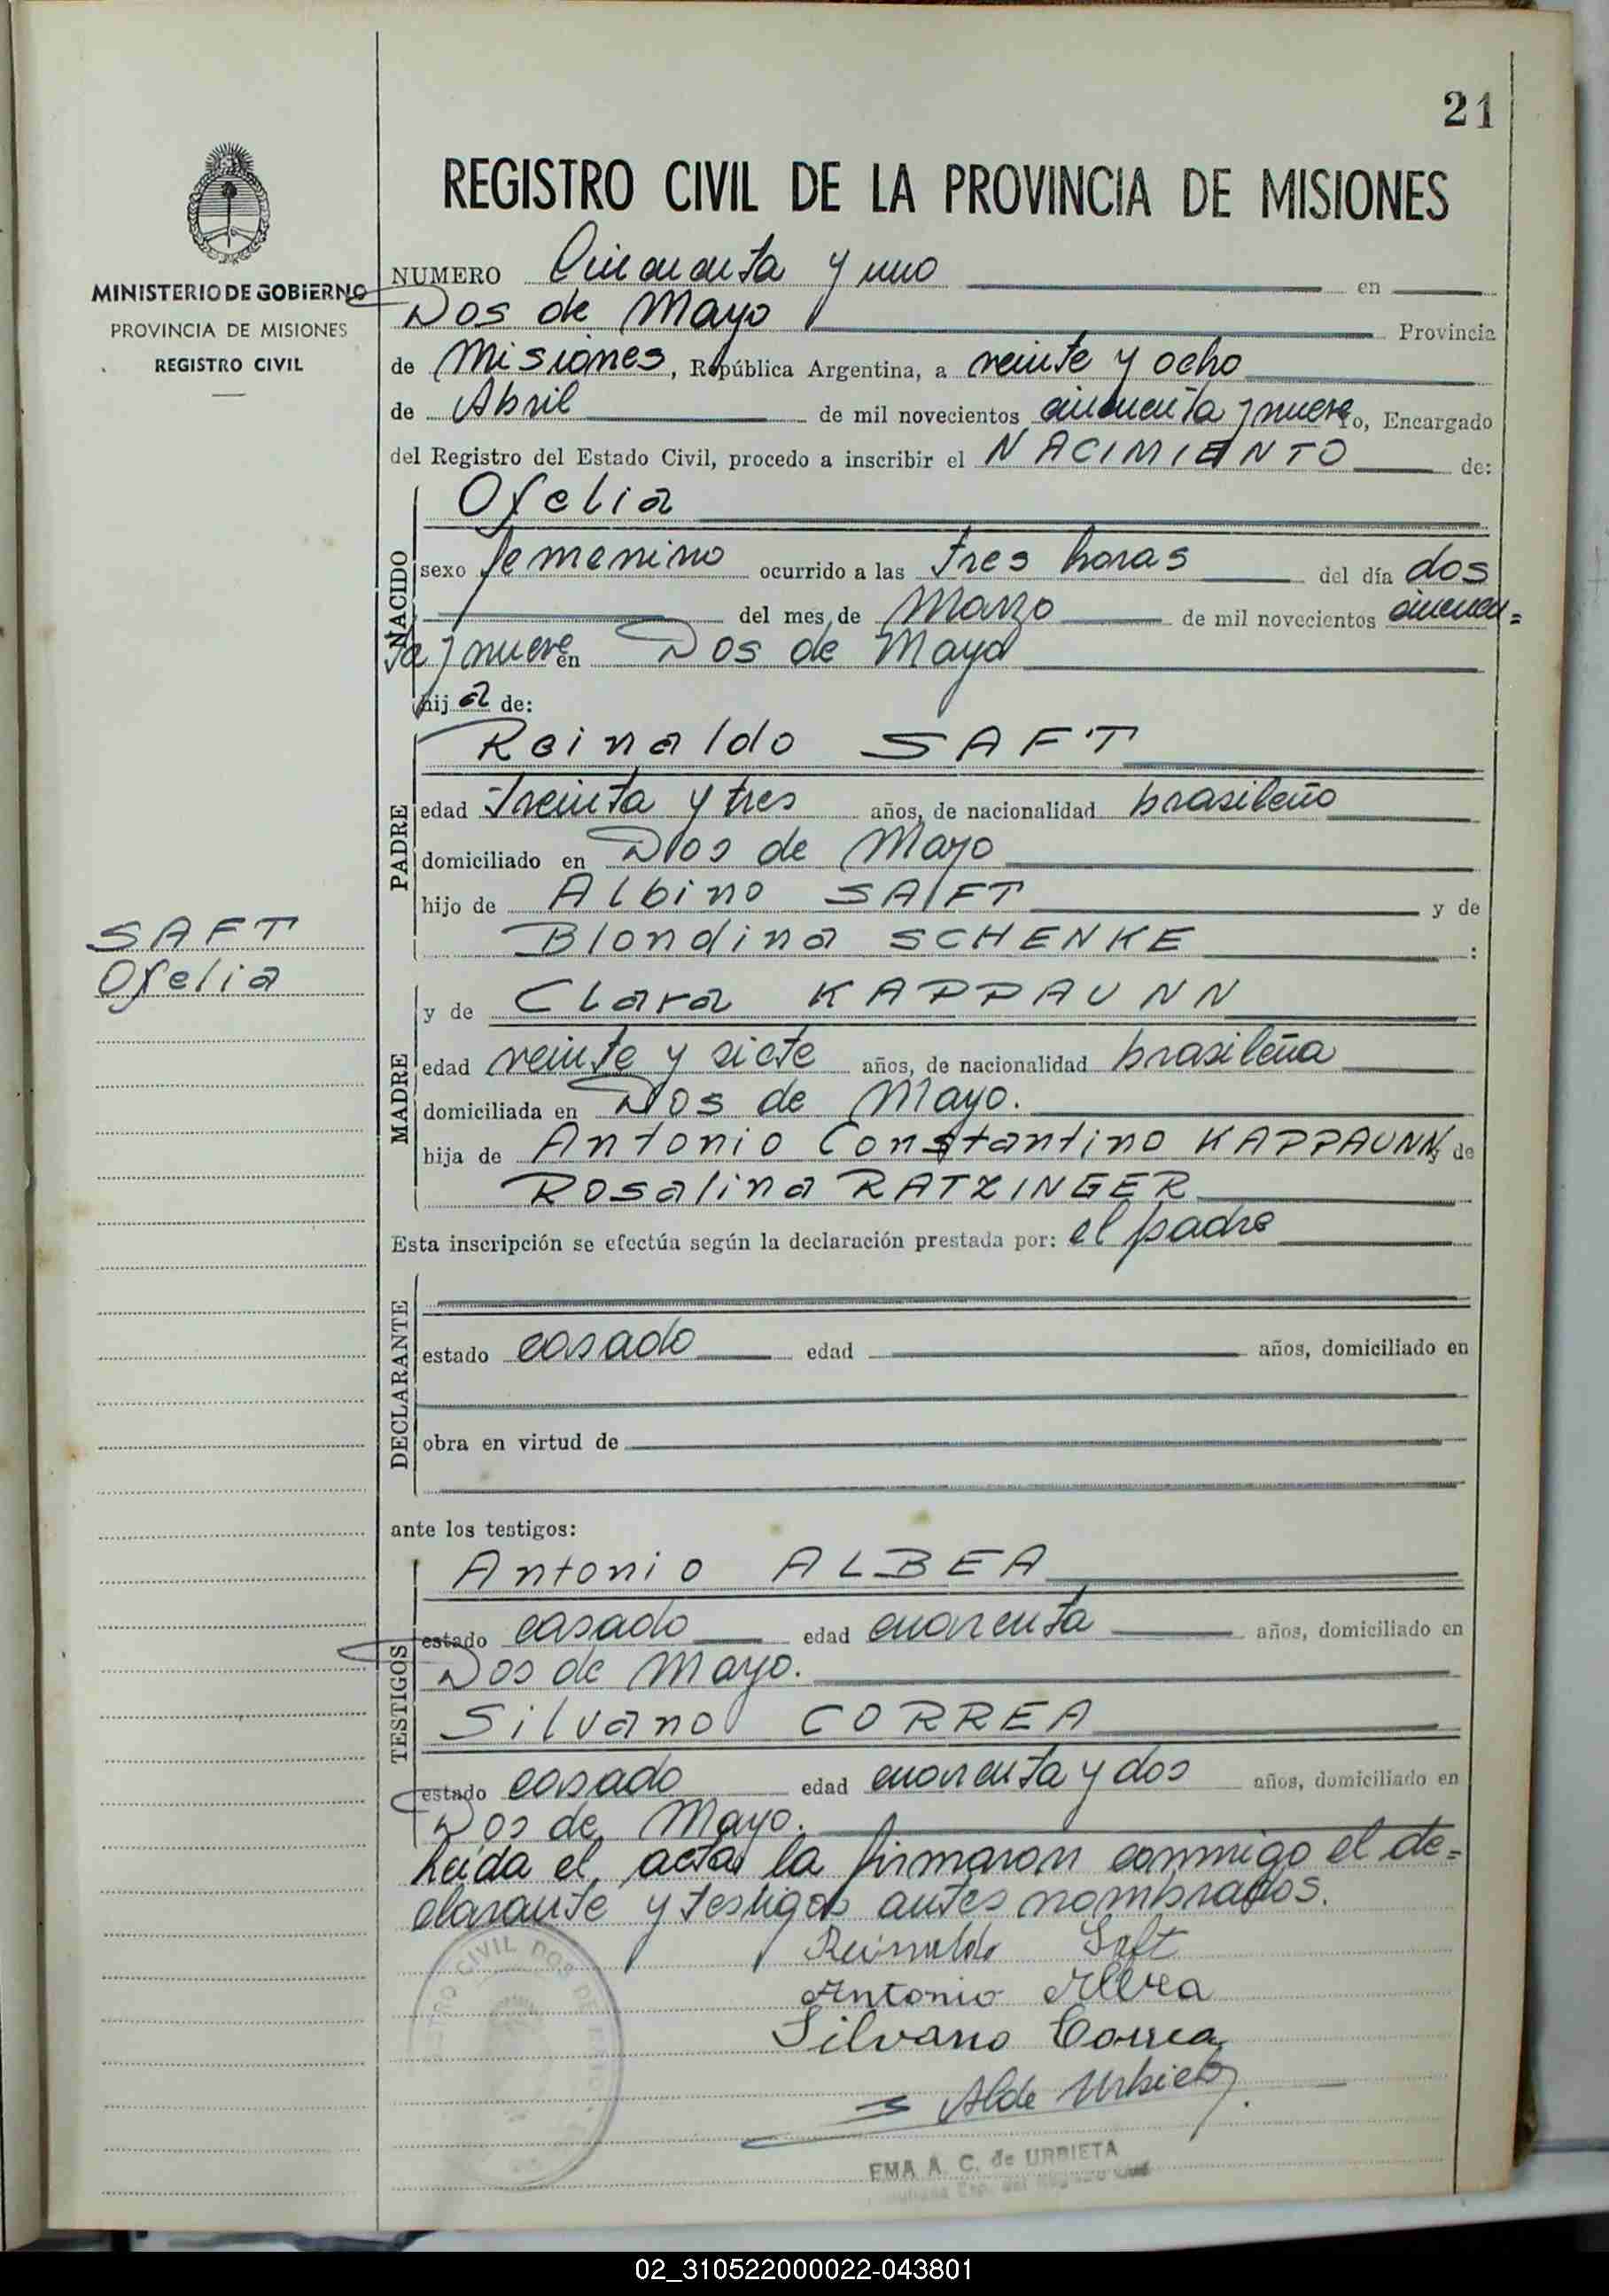 21
REGISTRO CIVIL DE LA PROVINCIA DE MISIONES
MINISTERIO DE GOBIERNO
PROVINCIA DE MISIONES
REGISTRO CIVIL
NUMERO Cincuenta y uno en
Dos de Mayo Provincia
de Misiones, República Argentina, a veinte y ocho
de Abril de mil novecientos cincuenta y nueve Yo, Encargado
del Registro del Estado Civil, procedo a inscribir el NACIMIENTO de:
NACIDO
Ofelia
sexo femenino ocurrido a las tres horas del día dos
del mes de Marzo de mil novecientos cincuen=
ta y nueve en Dos de Mayo
hija de:
PADRE
Reinaldo SAFT
edad treinta y tres años, de nacionalidad brasileño
domiciliado en Dos de Mayo
hijo de Albino SAFT y de
Blondina SCHENKE :
SAFT
Ofelia
MADRE
y de Clara KAPPAUNN
edad veinte y siete años, de nacionalidad brasileña
domiciliada en Dos de Mayo.
hija de Antonio Constantino KAPPAUNN y de
Rosalina RATZINGER
Esta inscripción se efectúa según la declaración prestada por: el padre
DECLARANTE
estado casado edad años, domiciliado en
obra en virtud de
ante los testigos:
TESTIGOS
Antonio ALBEA
estado casado edad cuarenta años, domiciliado en
Dos de Mayo.
Silvano CORREA
estado casado edad cuarenta y dos años, domiciliado en
Dos de Mayo.
Leida el acta, la firmaron conmigo el de=
clarante y testigos antes nombrados.
Reinaldo Saft
Antonio Albea
Silvano Correa
Alde Urbieta
CIVIL DOS DE
EMA A. C. de URBIETA
02_310522000022-043801